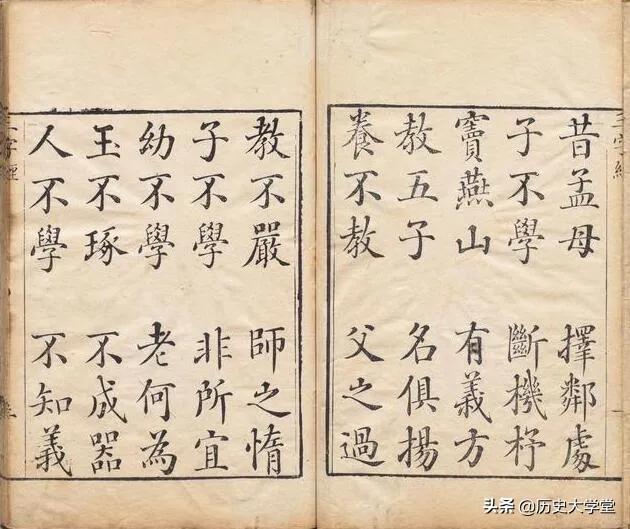 三字經
昔孟母 擇鄰處
子不學 斷機杼
竇燕山 有義方
教五子 名俱揚
養不教 父之過
教不嚴 師之惰
子不學 非所宜
幼不學 老何為
玉不琢 不成器
人不學 不知義
三字經
头条 @历史大学堂